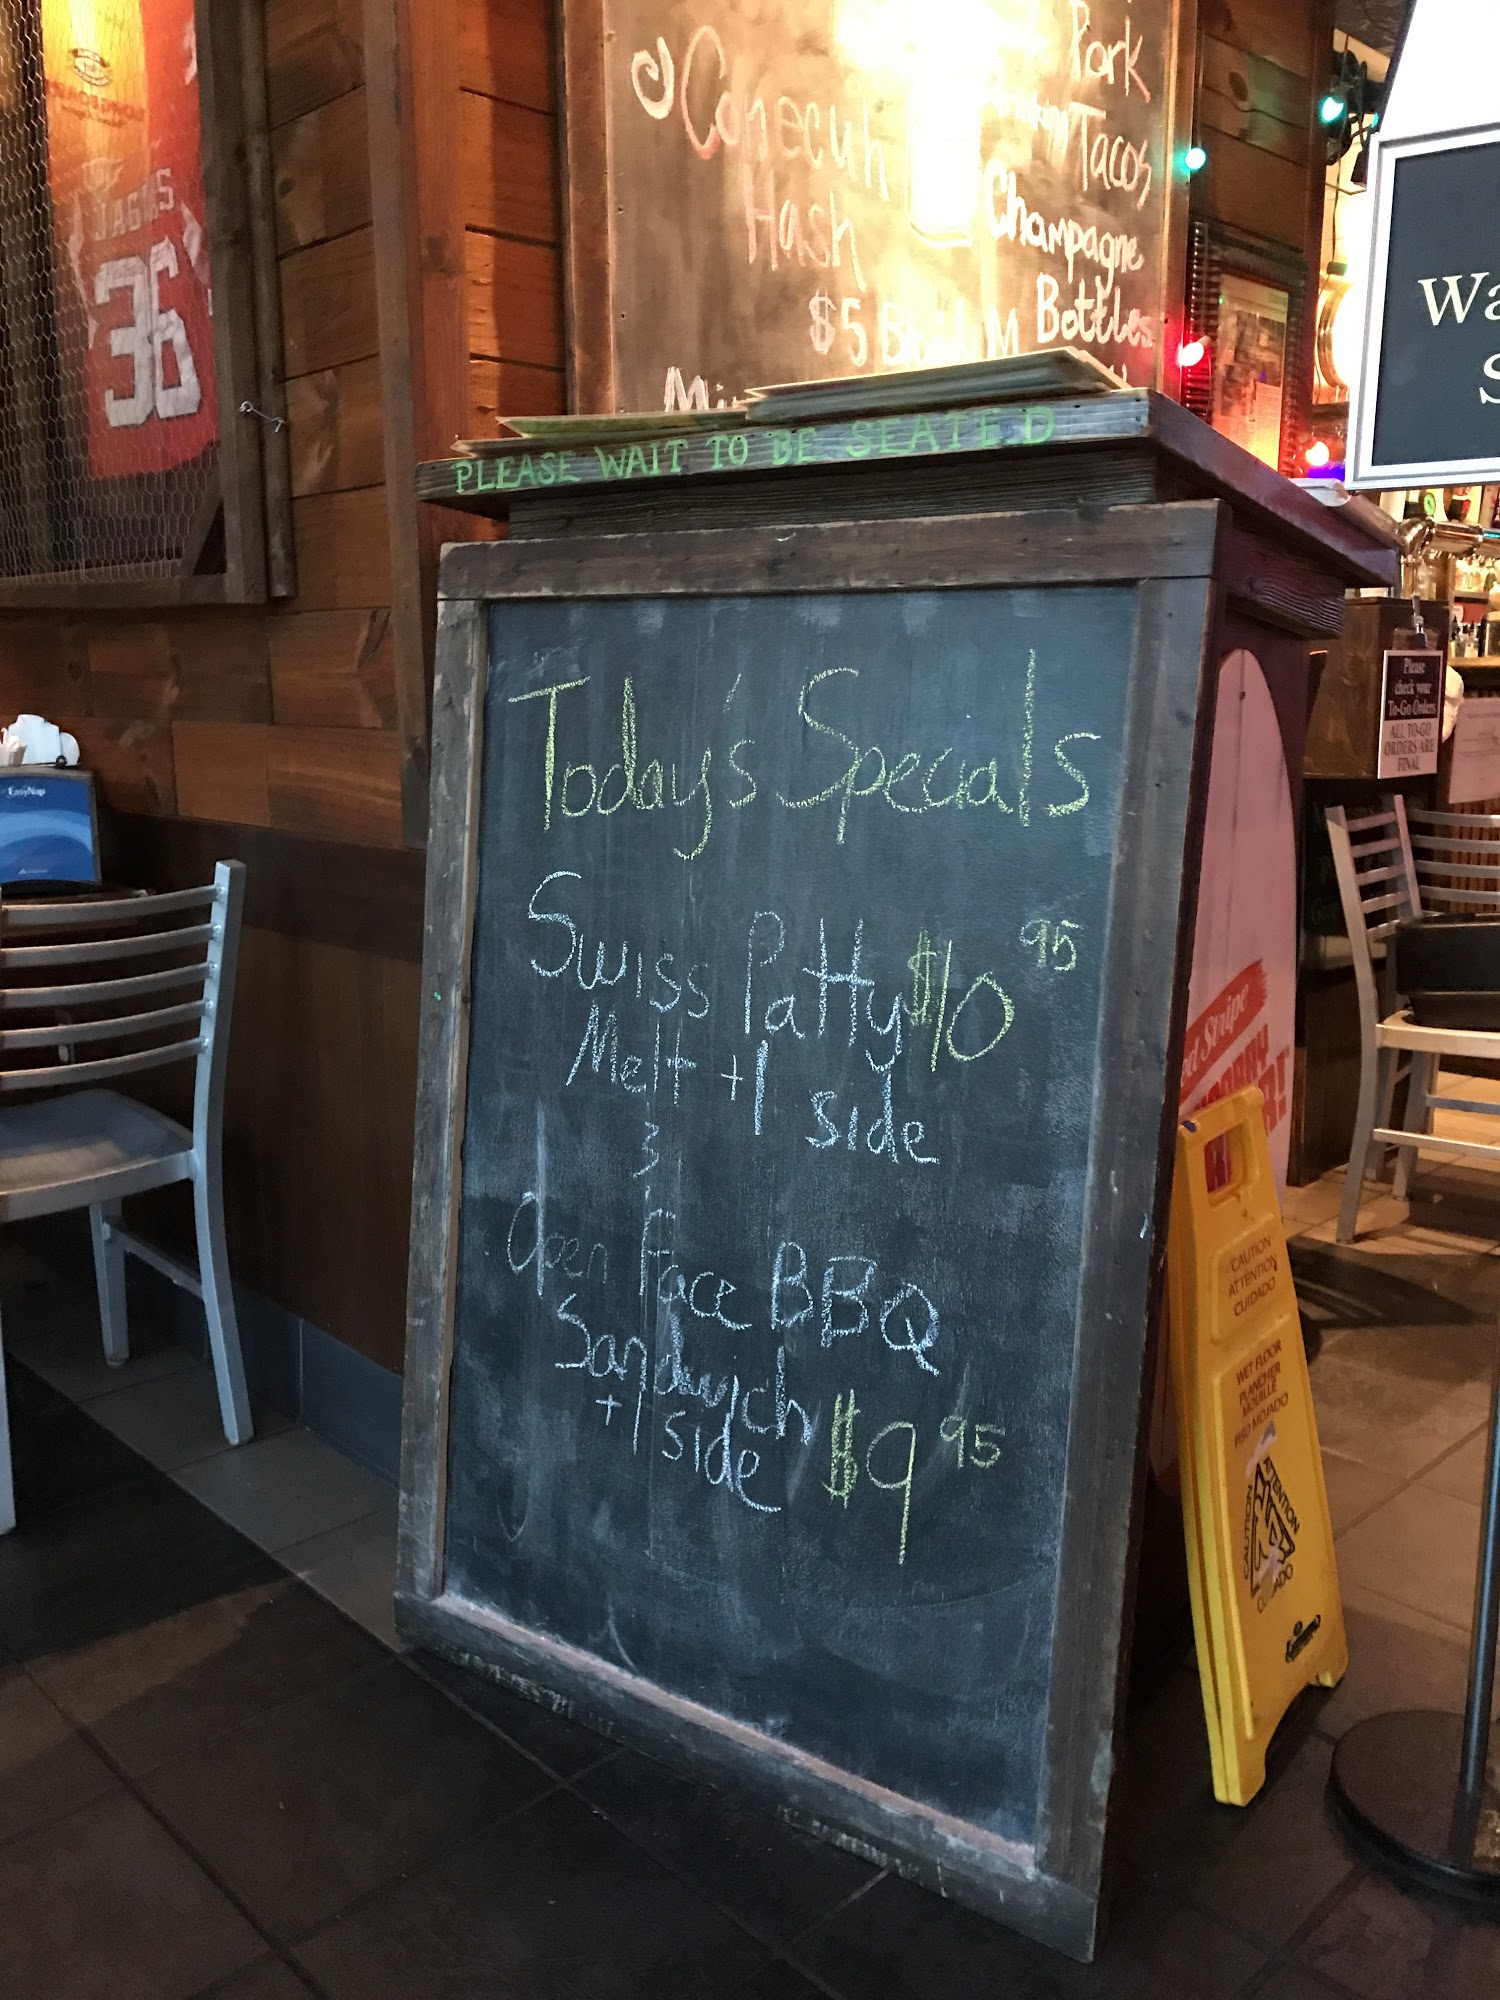 Conecuh
Hash
$5
Pork
Tacos
Champagne
Bottles
JAGUARS
36
PLEASE WAIT TO BE SEATED
Today's Specials
Swiss Patty $10 95
Melt +1 side
3
Open Face BBQ
Sandwich
+1 side $9 95
EasyNap
Please
check your
To-Go Orders
ALL TO-GO
ORDERS ARE
FINAL
Stripe
CAUTION
ATTENTION
CUIDADO
WET FLOOR
PLANCHER
MOUILLÉ
PISO MOJADO
CAUTION
ATTENTION
CUIDADO